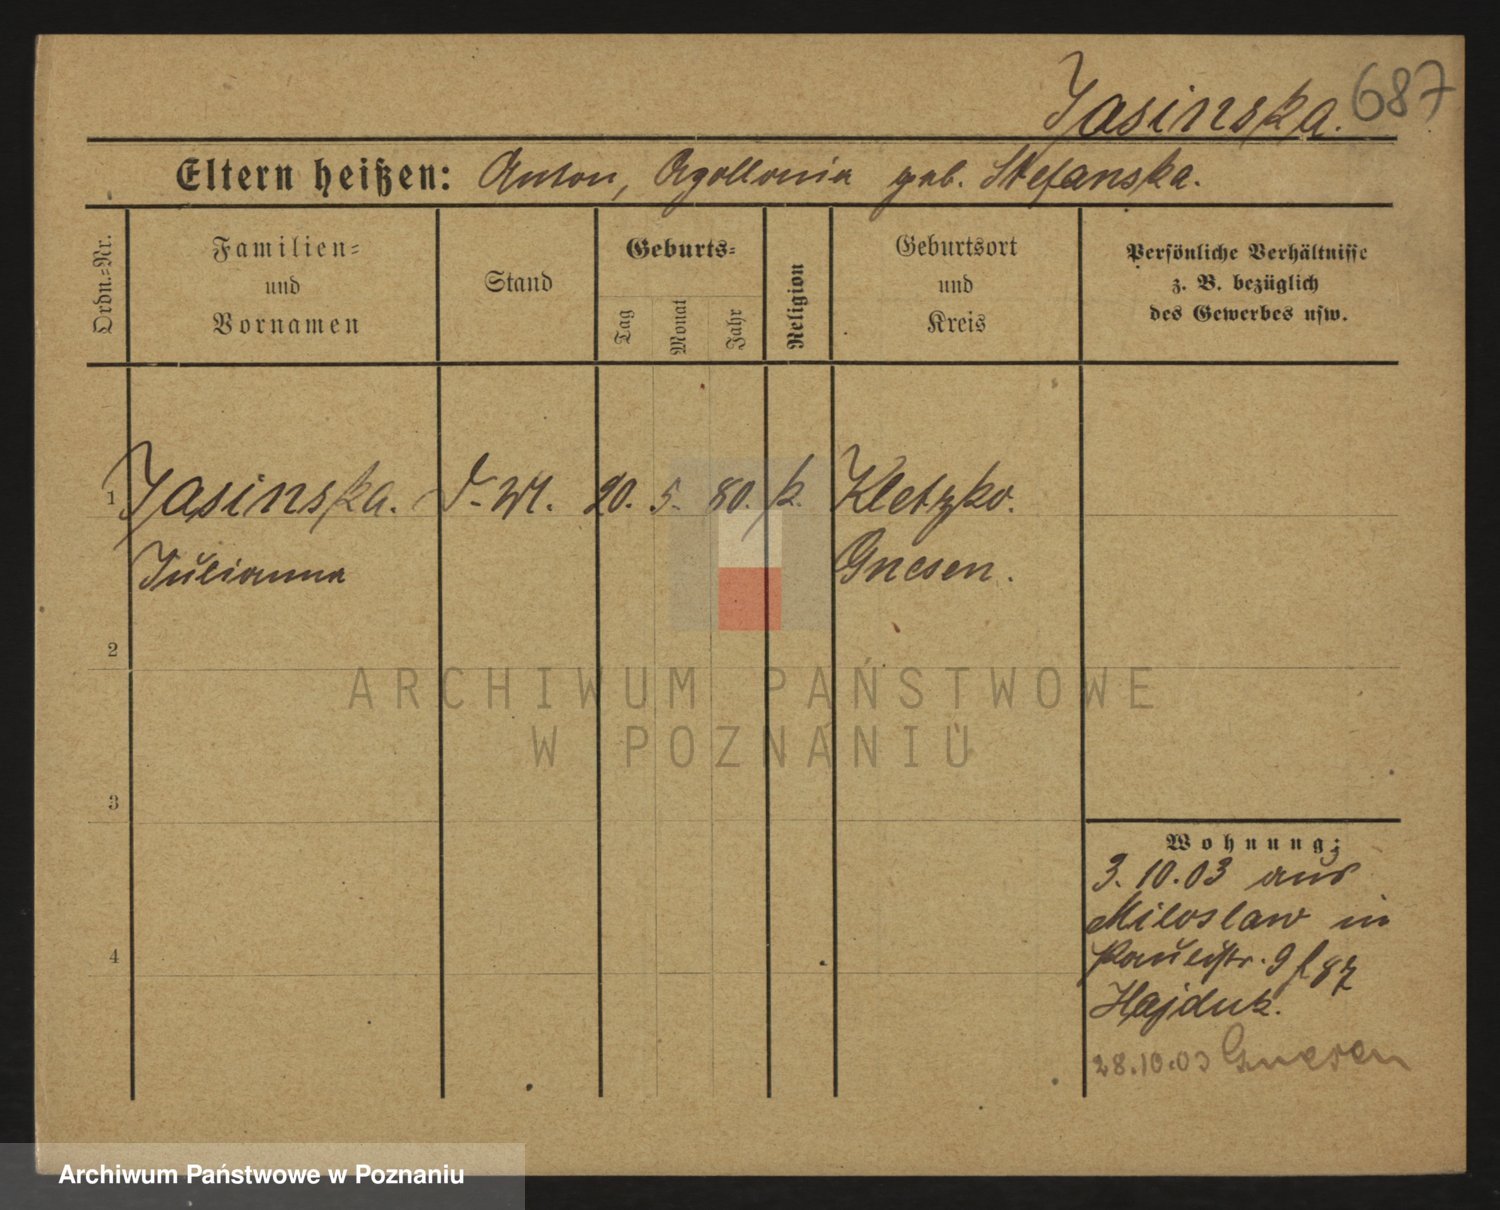 Jasinska. 687
Eltern heißen: Anton, Apollonia geb. Stefanska.
Ordn.=Nr.
Familien=
und
Vornamen
Stand
Geburts=
Tag
Monat
Jahr
Religion
Geburtsort
und
Kreis
Persönliche Verhältnisse
z. B. bezüglich
des Gewerbes usw.
1 Jasinska. 20. 5. 80. k. Kletzko.
Julianna Gnesen.
2
3
4
Wohnung:
3.10.03 aus
Miloslaw in
Paulistr. 9
Hajduk.
28.10.03 Gnesen
ARCHIWUM PAŃSTWOWE
W POZNANIU
Archiwum Państwowe w Poznaniu